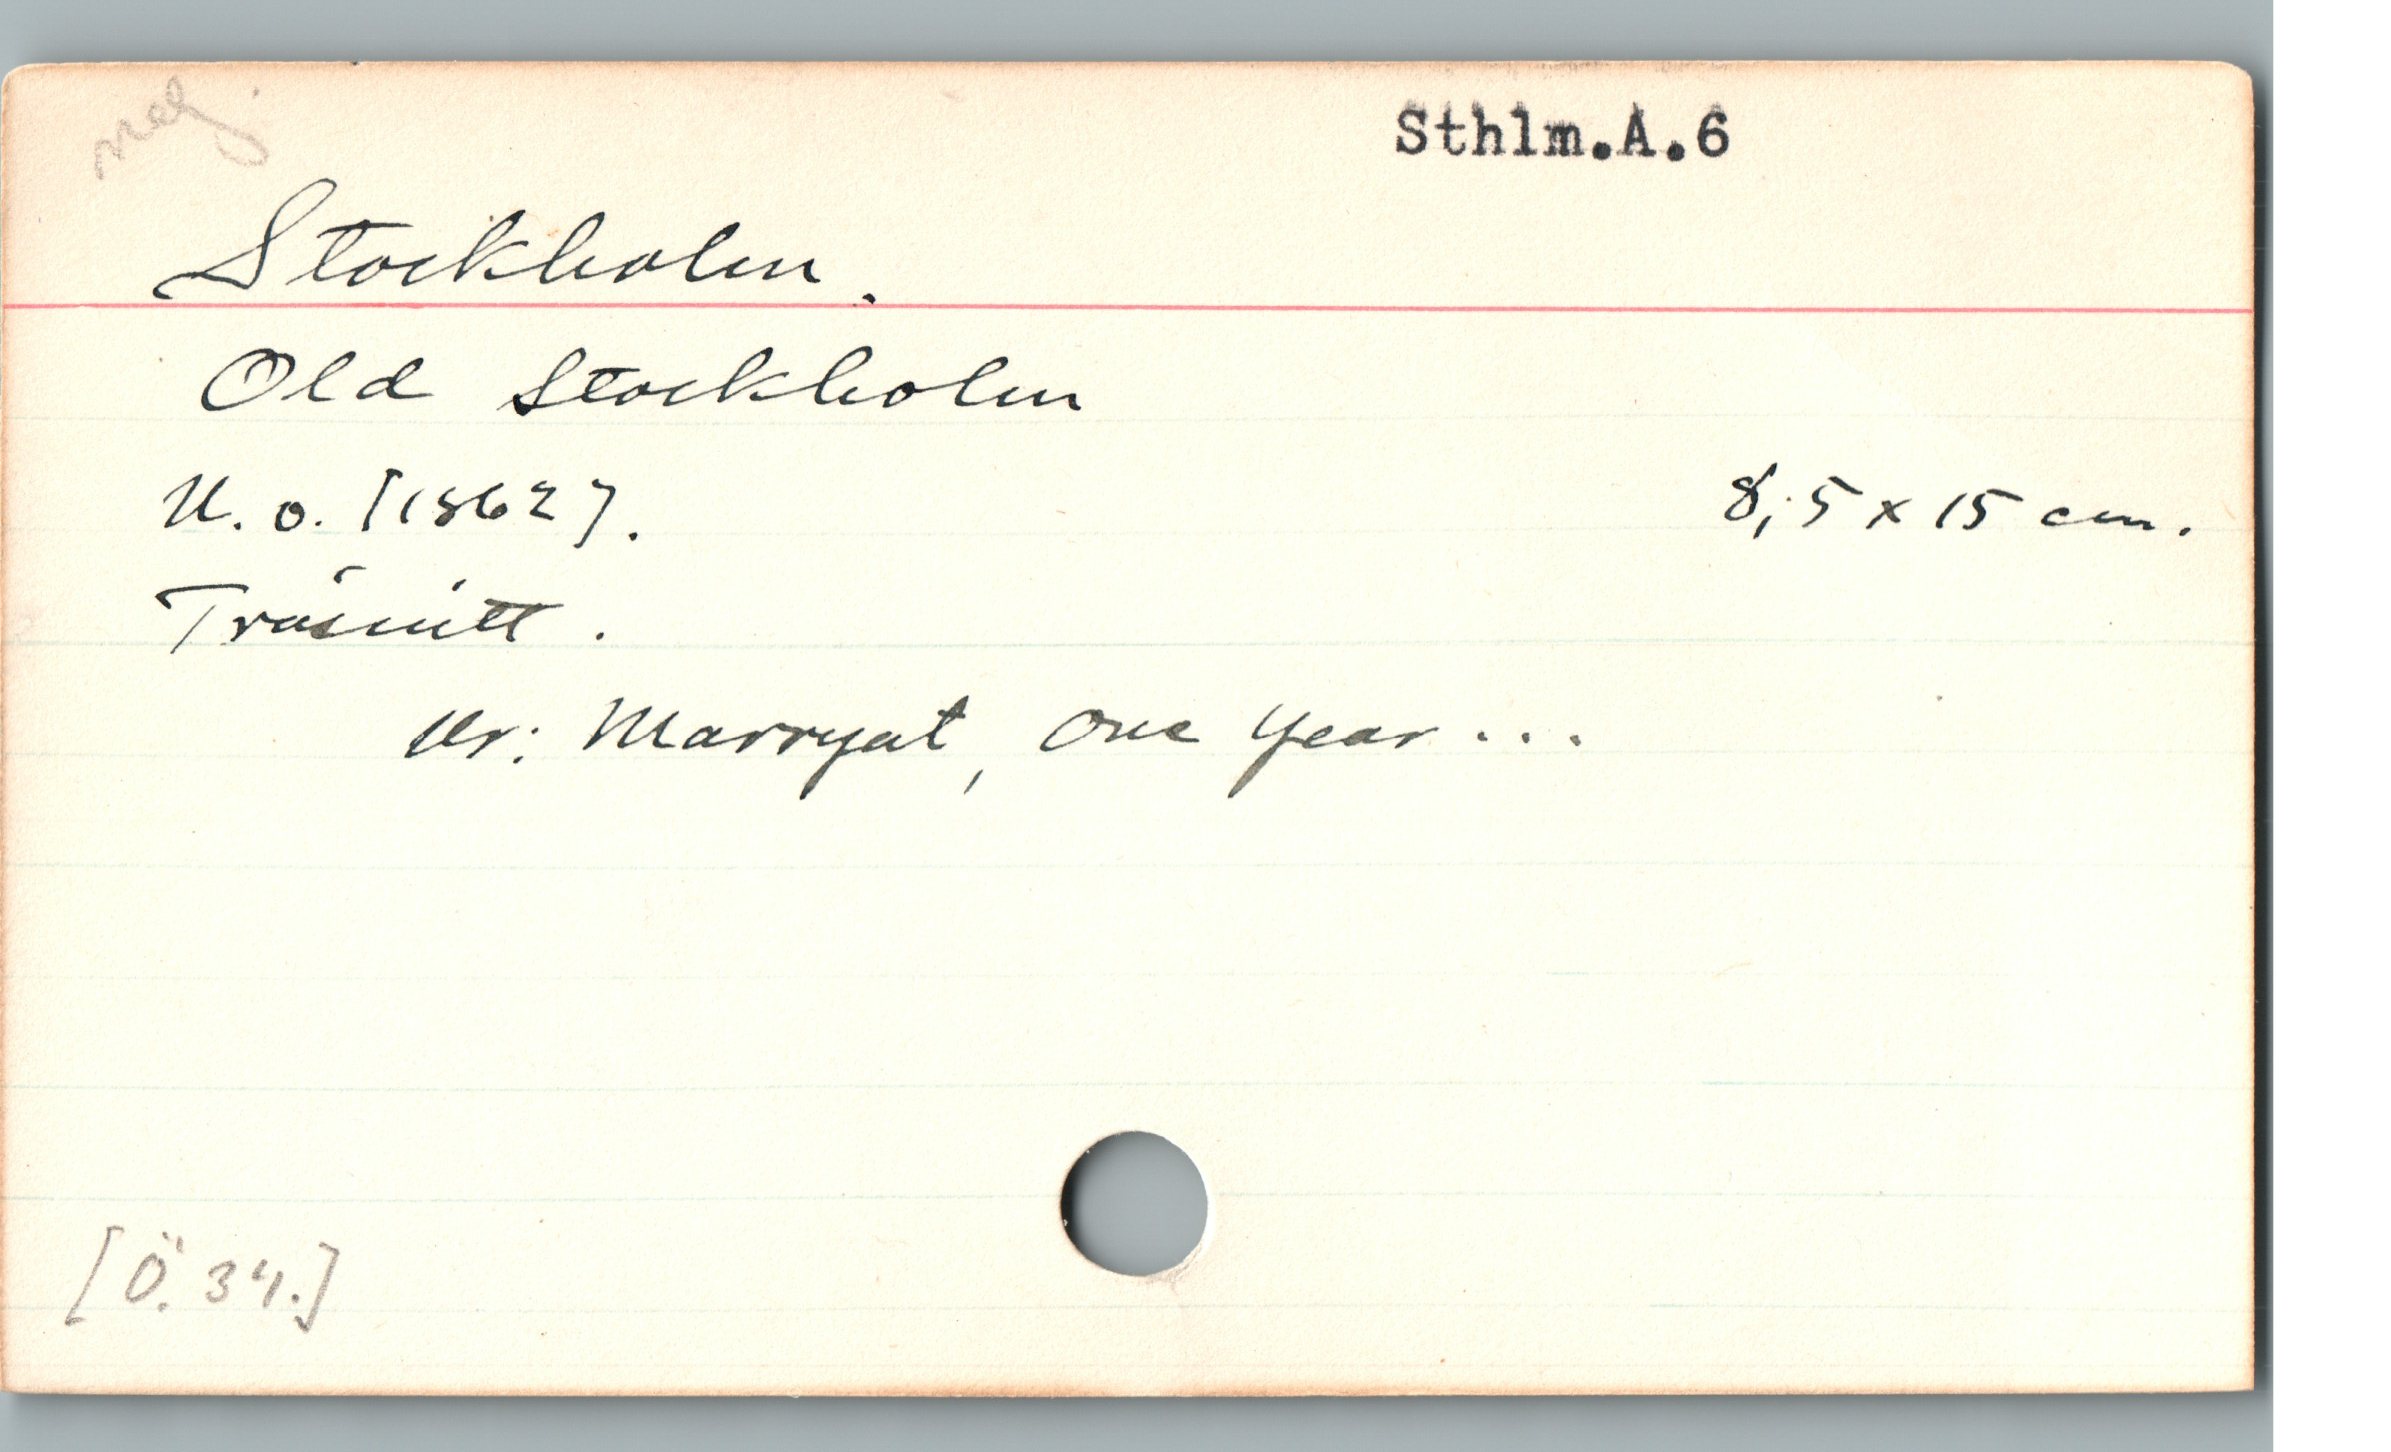 Sthlm.A.6
Stockholm.
Old Stockholm
U. o. [1862].
8,5 x 15 cm.
Träsnitt.
Ur: Marryat, One Year...
[Ö. 34.]